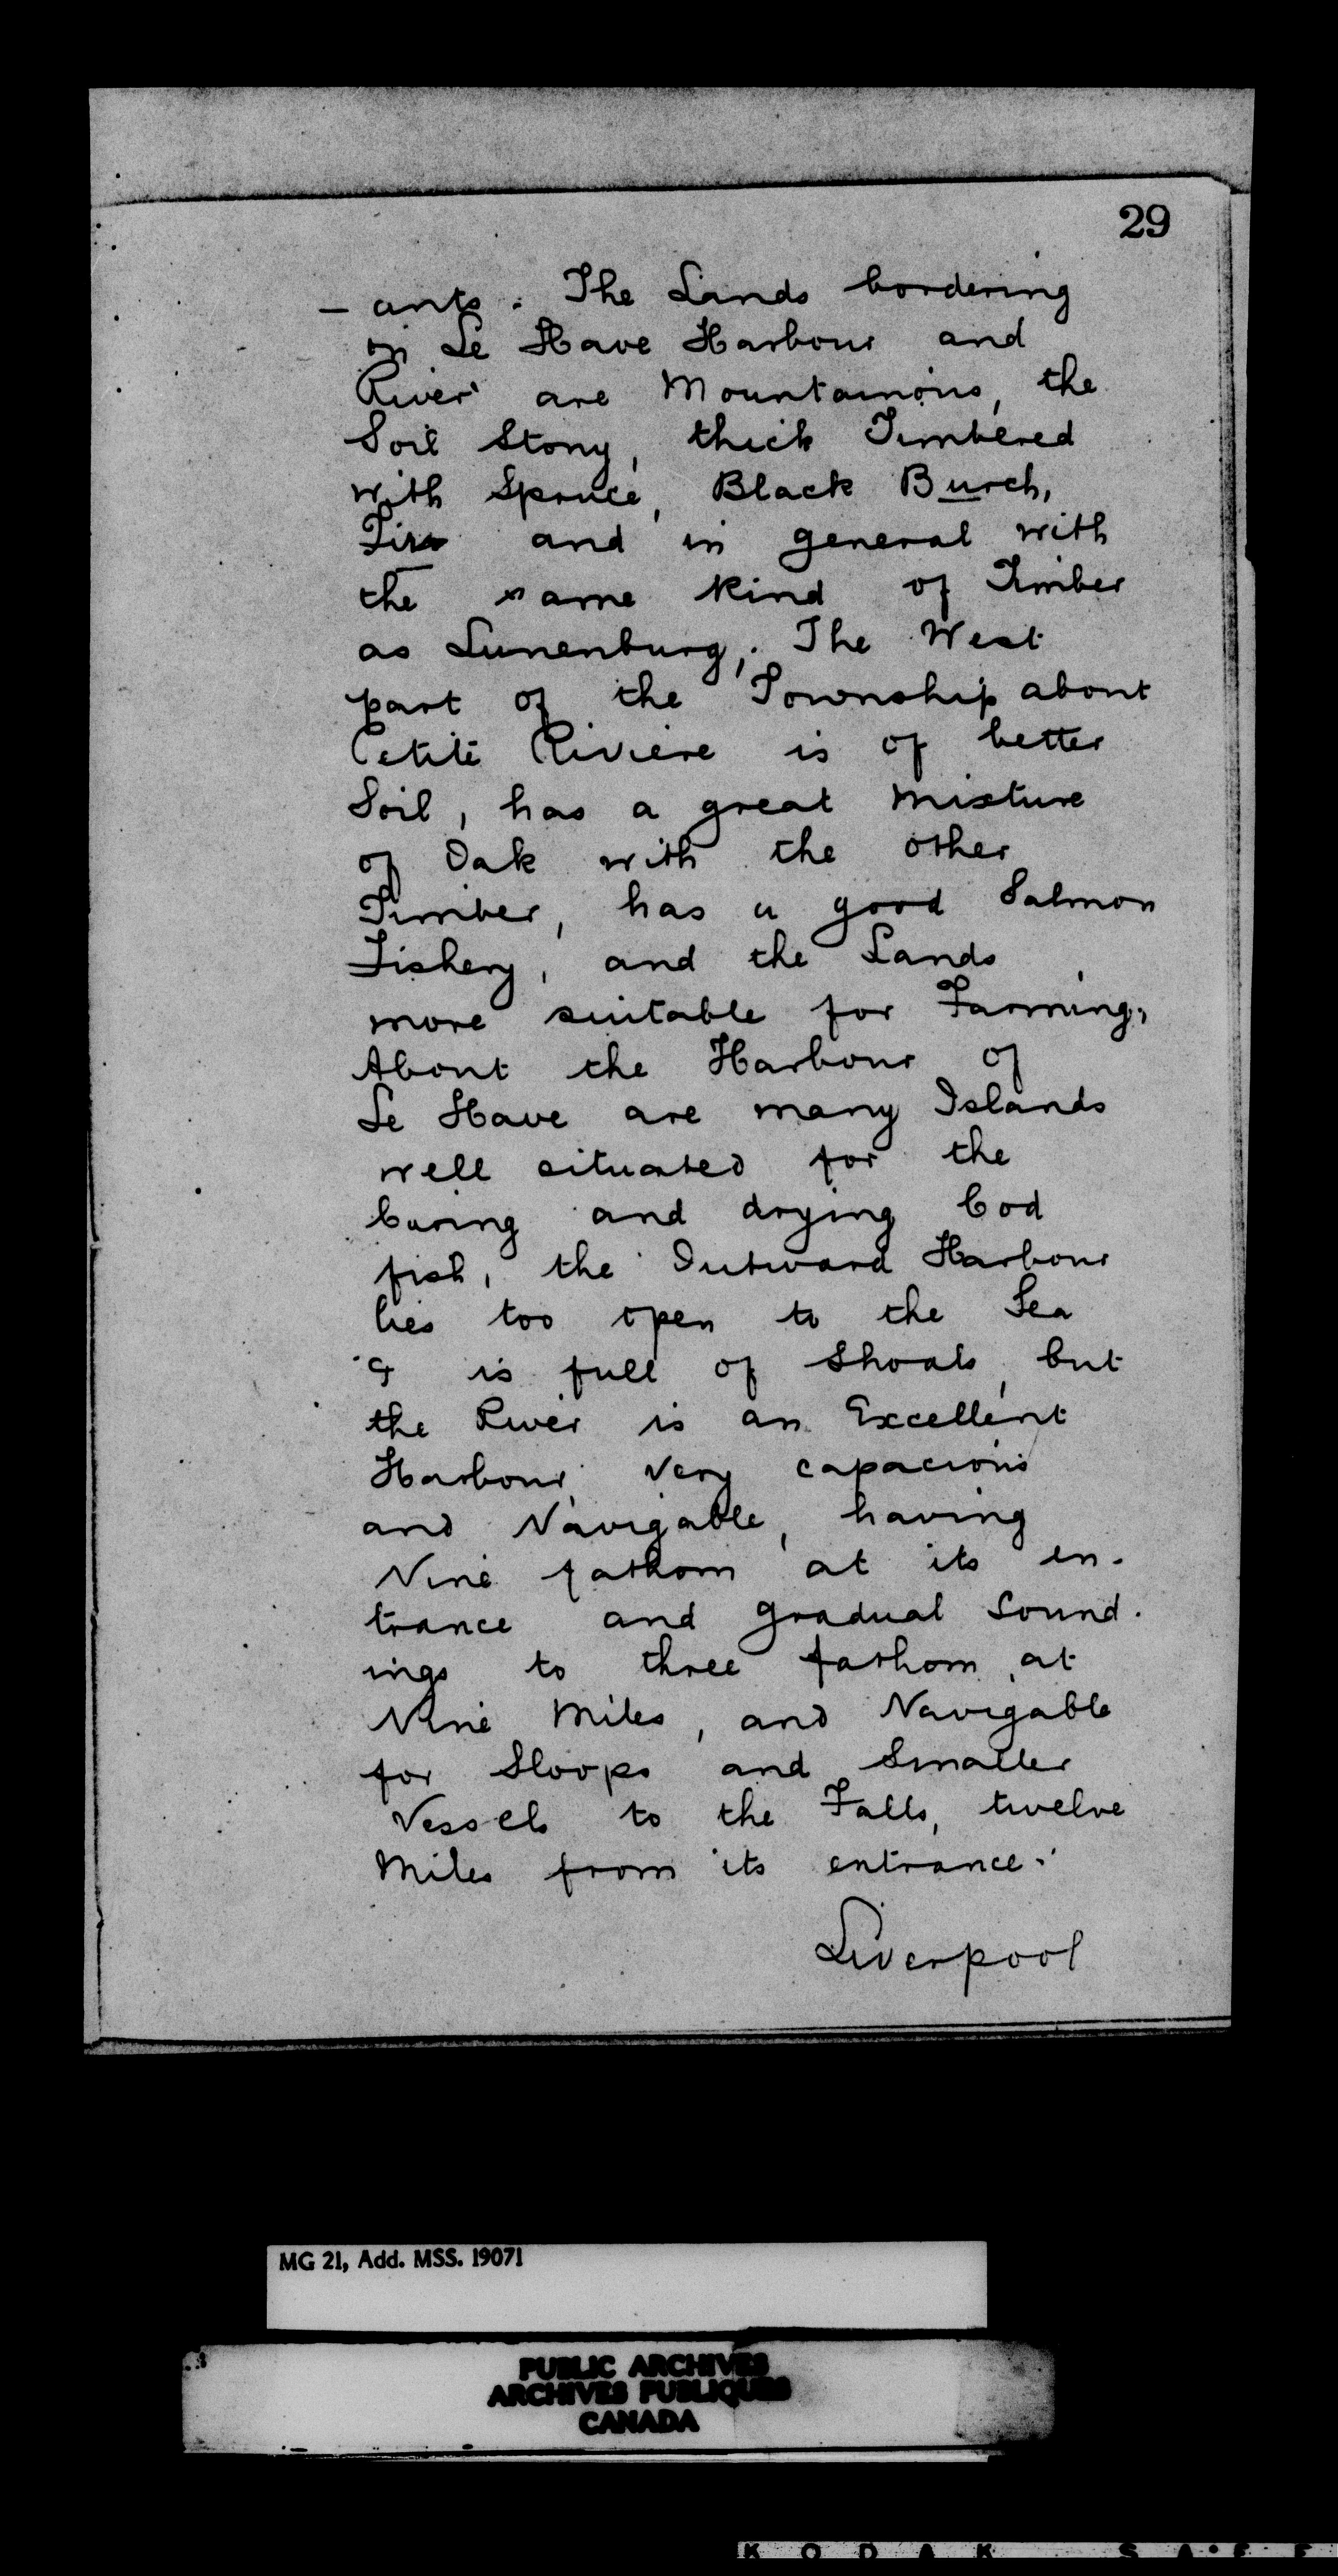 29
- ants. The Lands bordering
on Le Have Harbour and
River are Mountainous, the
Soil Stony, thick Timbered
with Spruce, Black Burch,
Firs and in general with
the same kind of Timber
as Lunenburg,. The West
part of the Township about
Petite Riviere is of better
Soil, has a great mixture
of Oak with the other
Timber, has a good Salmon
Fishery, and the Lands
more suitable for Farming,
About the Harbour of
Le Have are many Islands
well situated for the
Curing and drying Cod
fish, the Outward Harbour
lies too open to the Sea
& is full of Shoals, but
the River is an Excellent
Harbour, very capacious
and Navigable, having
Nine fathom at its en-
trance and gradual Sound-
ings to three fathom at
Nine Miles, and Navigable
for Sloops and Smaller
Vessels to the Falls, twelve
Miles from its entrance.
Liverpool
MG 21, Add. MSS. 19071
PUBLIC ARCHIVES
ARCHIVES PUBLIQUES
CANADA
K O D A K S A F E